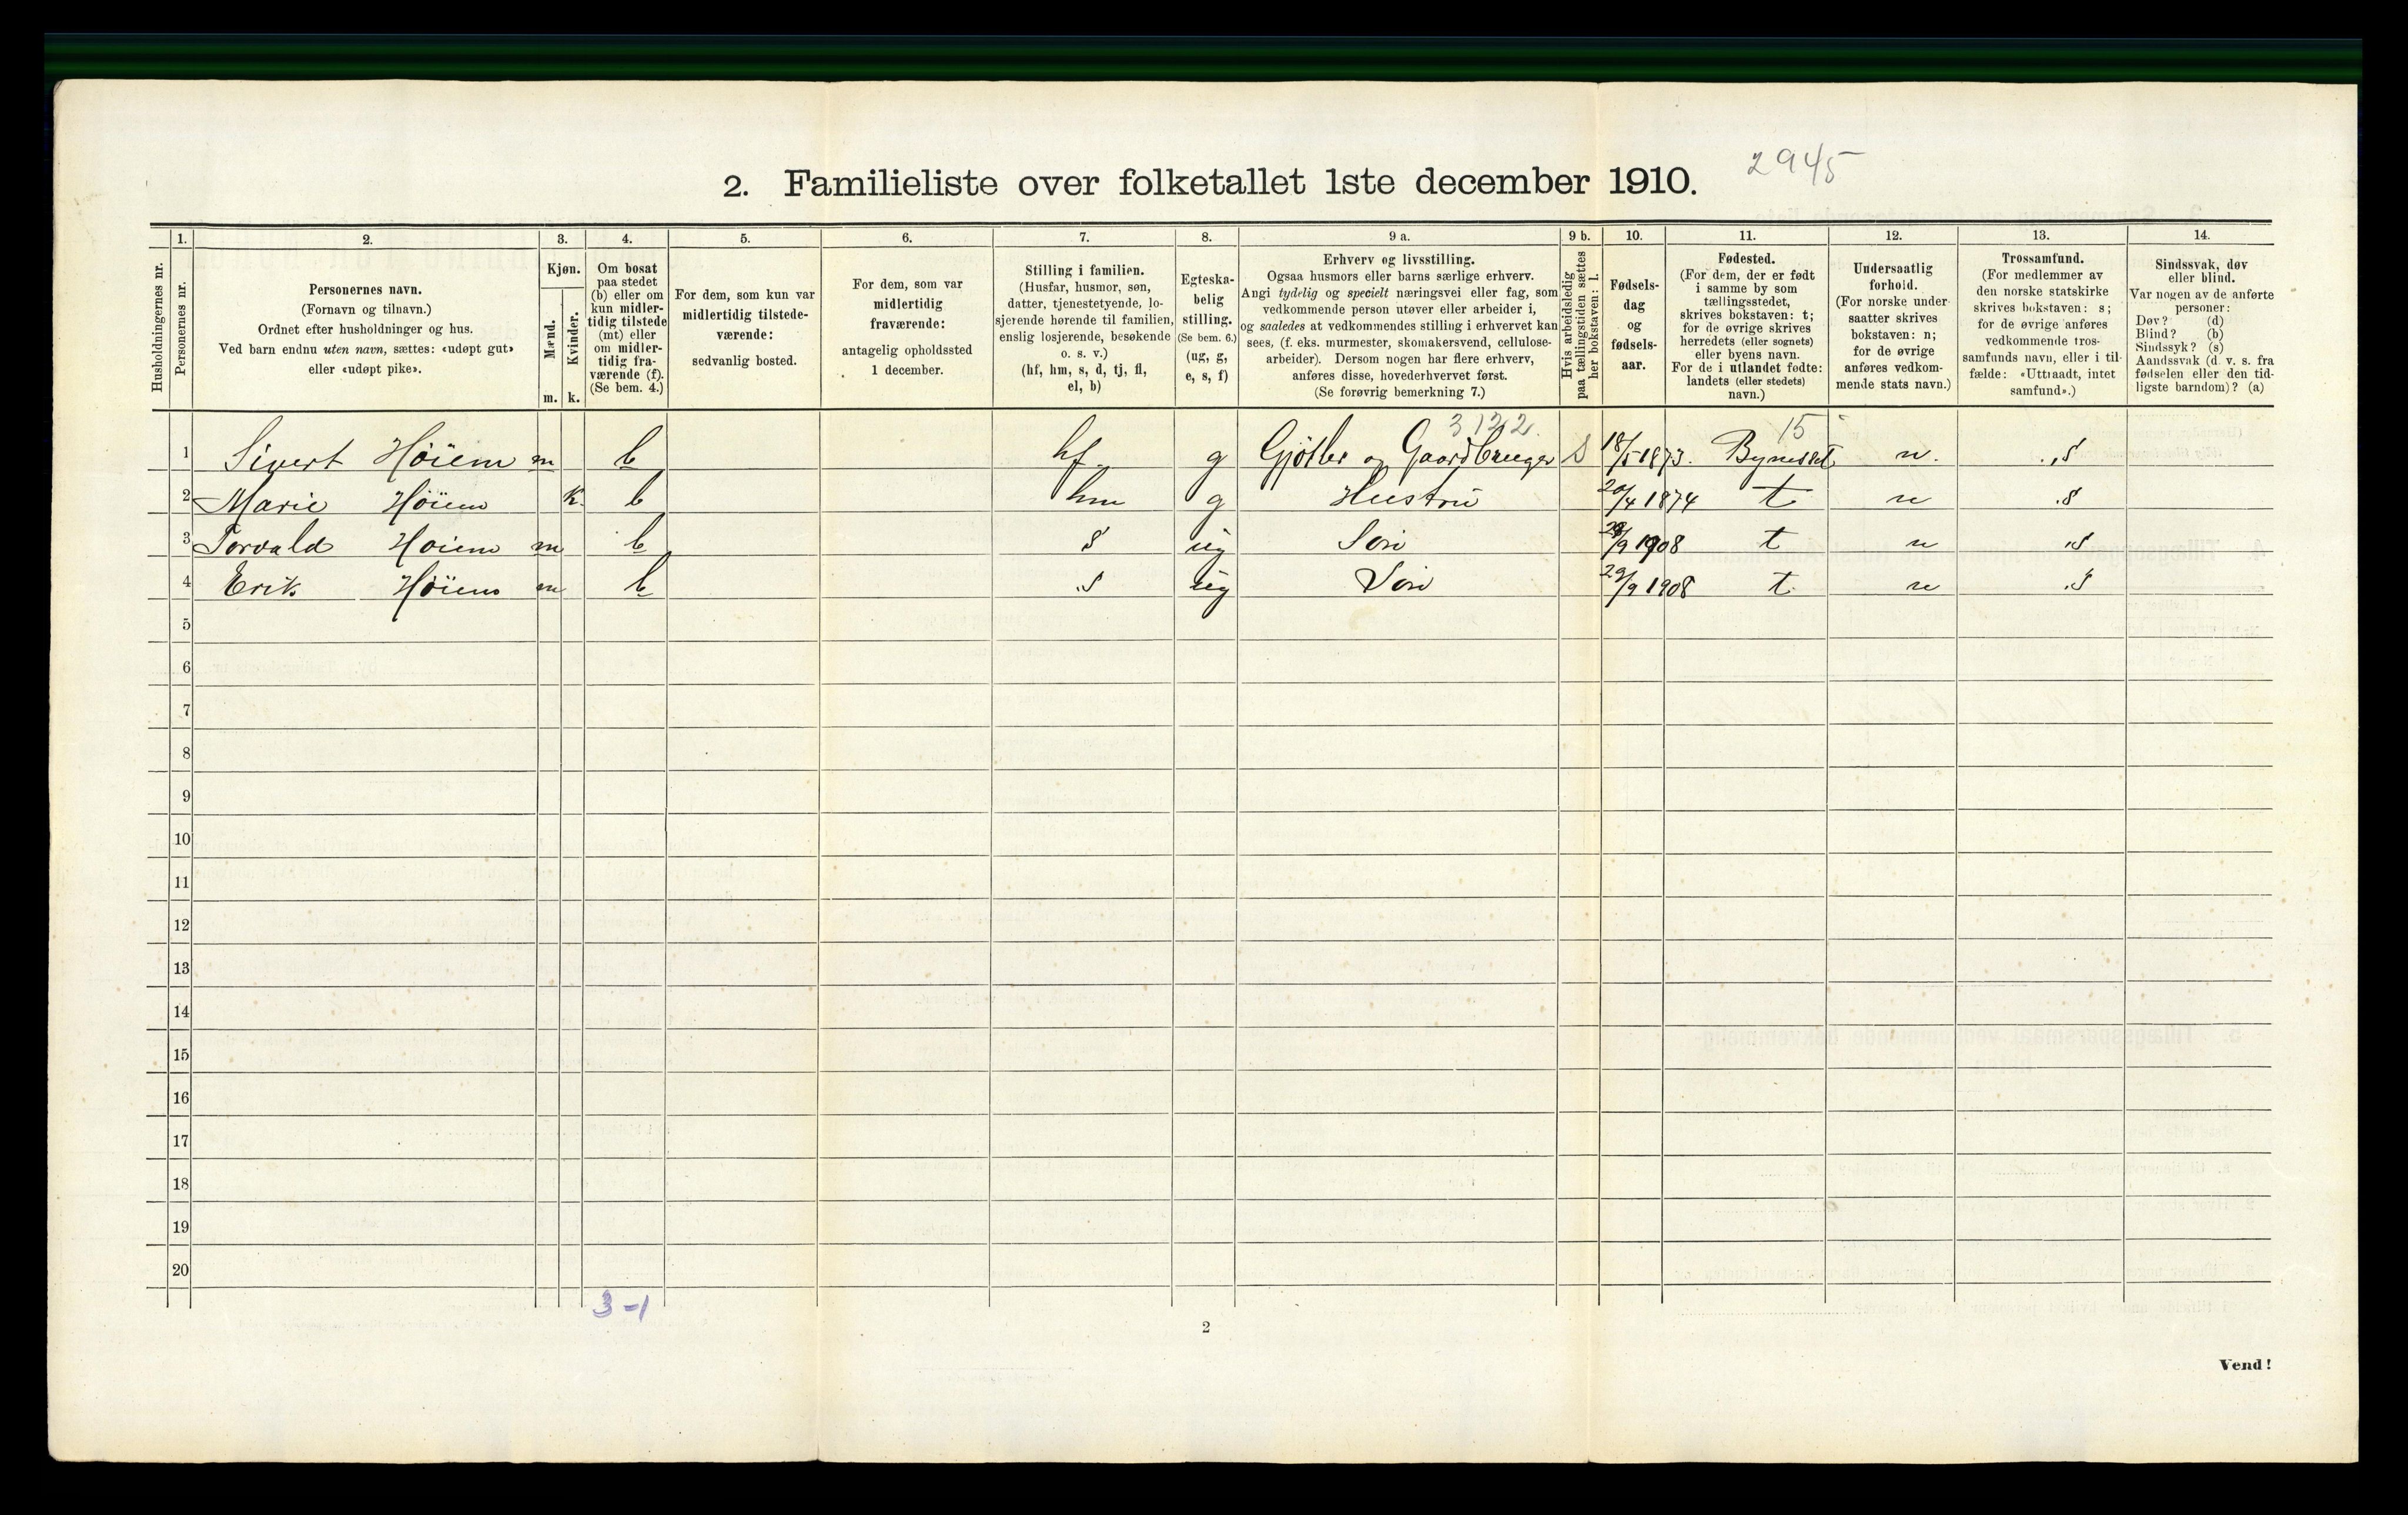 2. Familieliste over folketallet 1ste december 1910. 2945
Husholdningernes nr.
1.
Personernes nr.
2.
Personernes navn.
(Fornavn og tilnavn.)
Ordnet efter husholdninger og hus.
Ved barn endnu uten navn, sættes: «udøpt gut»
eller «udøpt pike».
3.
Kjøn.
Mænd.
Kvinder.
m. k.
4.
Om bosat
paa stedet
(b) eller om
kun midler-
tidig tilstede
(mt) eller
om midler-
tidig fra-
værende (f).
(Se bem. 4.)
5.
For dem, som kun var
midlertidig tilstede-
værende:
sedvanlig bosted.
6.
For dem, som var
midlertidig
fraværende:
antagelig opholdssted
1 december.
7.
Stilling i familien.
(Husfar, husmor, søn,
datter, tjenestetyende, lo-
sjerende hørende til familien,
enslig losjerende, besøkende
o. s. v.)
(hf, hm, s, d, tj, fl,
el, b)
8.
Egteska-
belig
stilling.
(Se bem. 6.)
(ug, g,
e, s, f)
9 a.
Erhverv og livsstilling.
Ogsaa husmors eller barns særlige erhverv.
Angi tydelig og specielt næringsvei eller fag, som
vedkommende person utøver eller arbeider i,
og saaledes at vedkommendes stilling i erhvervet kan
sees, (f. eks. murmester, skomakersvend, cellulose-
arbeider). Dersom nogen har flere erhverv,
anføres disse, hovederhvervet først.
(Se forøvrig bemerkning 7.)
9 b.
Hvis arbeidsledig
paa tællingstiden sættes
her bokstaven: l.
10.
Fødsels-
dag
og
fødsels-
aar.
11.
Fødested.
(For dem, der er født
i samme by som
tællingsstedet,
skrives bokstaven: t;
for de øvrige skrives
herredets (eller sognets)
eller byens navn.
For de i utlandet fødte:
landets (eller stedets)
navn.)
12.
Undersaatlig
forhold.
(For norske under-
saatter skrives
bokstaven: n;
for de øvrige
anføres vedkom-
mende stats navn.)
13.
Trossamfund.
(For medlemmer av
den norske statskirke
skrives bokstaven: s;
for de øvrige anføres
vedkommende tros-
samfunds navn, eller i til-
fælde: «Uttraadt, intet
samfund».)
14.
Sindssvak, døv
eller blind.
Var nogen av de anførte
personer:
Døv? (d)
Blind? (b)
Sindssyk? (s)
Aandssvak (d. v. s. fra
fødselen eller den tid-
ligste barndom)? (a)
3122. 15
1 Sivert Höiem m b hf. g Gjötler og Gaardbruger S 18/5 1873. Bynesset n. s
2 Marie Höiem k. b hm g Hustru 20/4 1874 t n s
3 Torvald Höiem m b s ug Sön /9 1908 t n s
4 Erik Höiem m b s ug Sön 29/9 1908 t. n s
5
6
7
8
9
10
11
12
13
14
15
16
17
18
19
20
3-1
2
Vend!